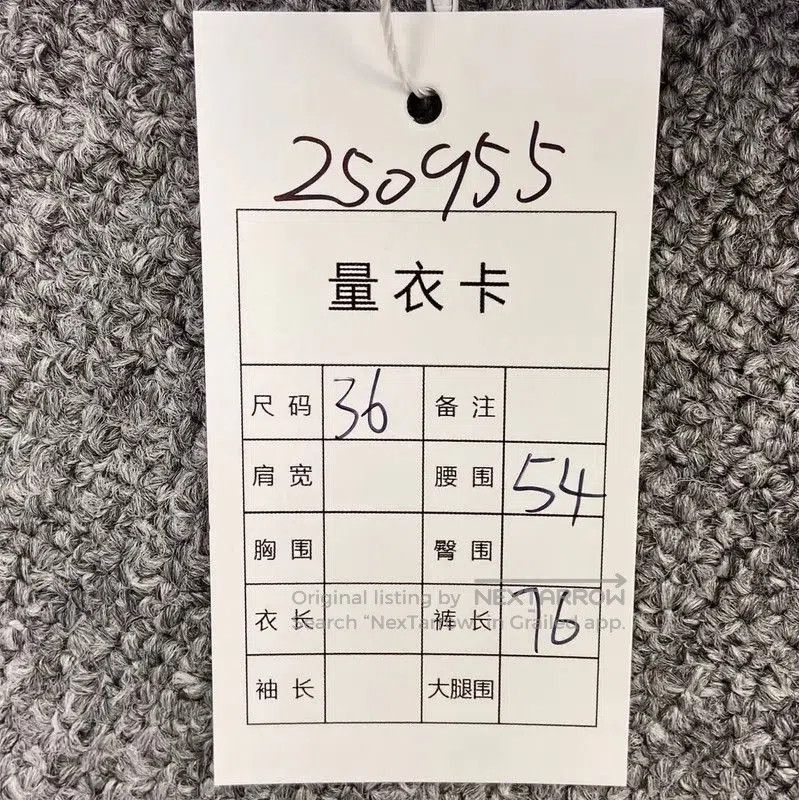 250955
量衣卡
尺码 36 备注
肩宽 腰围 54
胸围 臀围
Original listing by NEXTARROW
衣长 裤长 76
Search "NexTarrow" in Grailed app.
袖长 大腿围